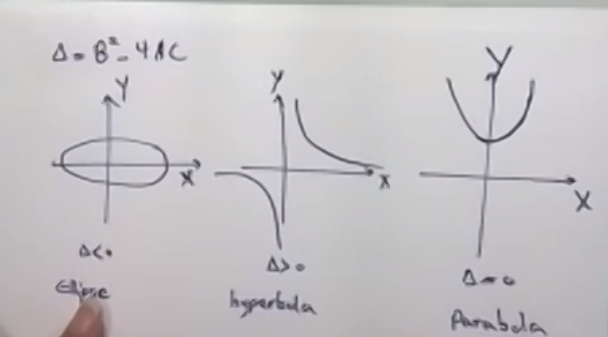 Δ = B² - 4AC
Y
X
Δ<0
Ellipse
Y
X
Δ>0
hyperbola
Y
X
Δ=0
Parabola